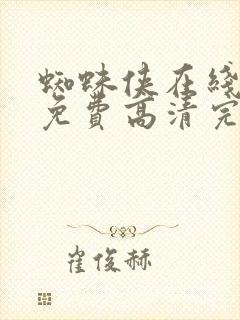 蜘蛛侠在线
免费高清完
崔俊赫